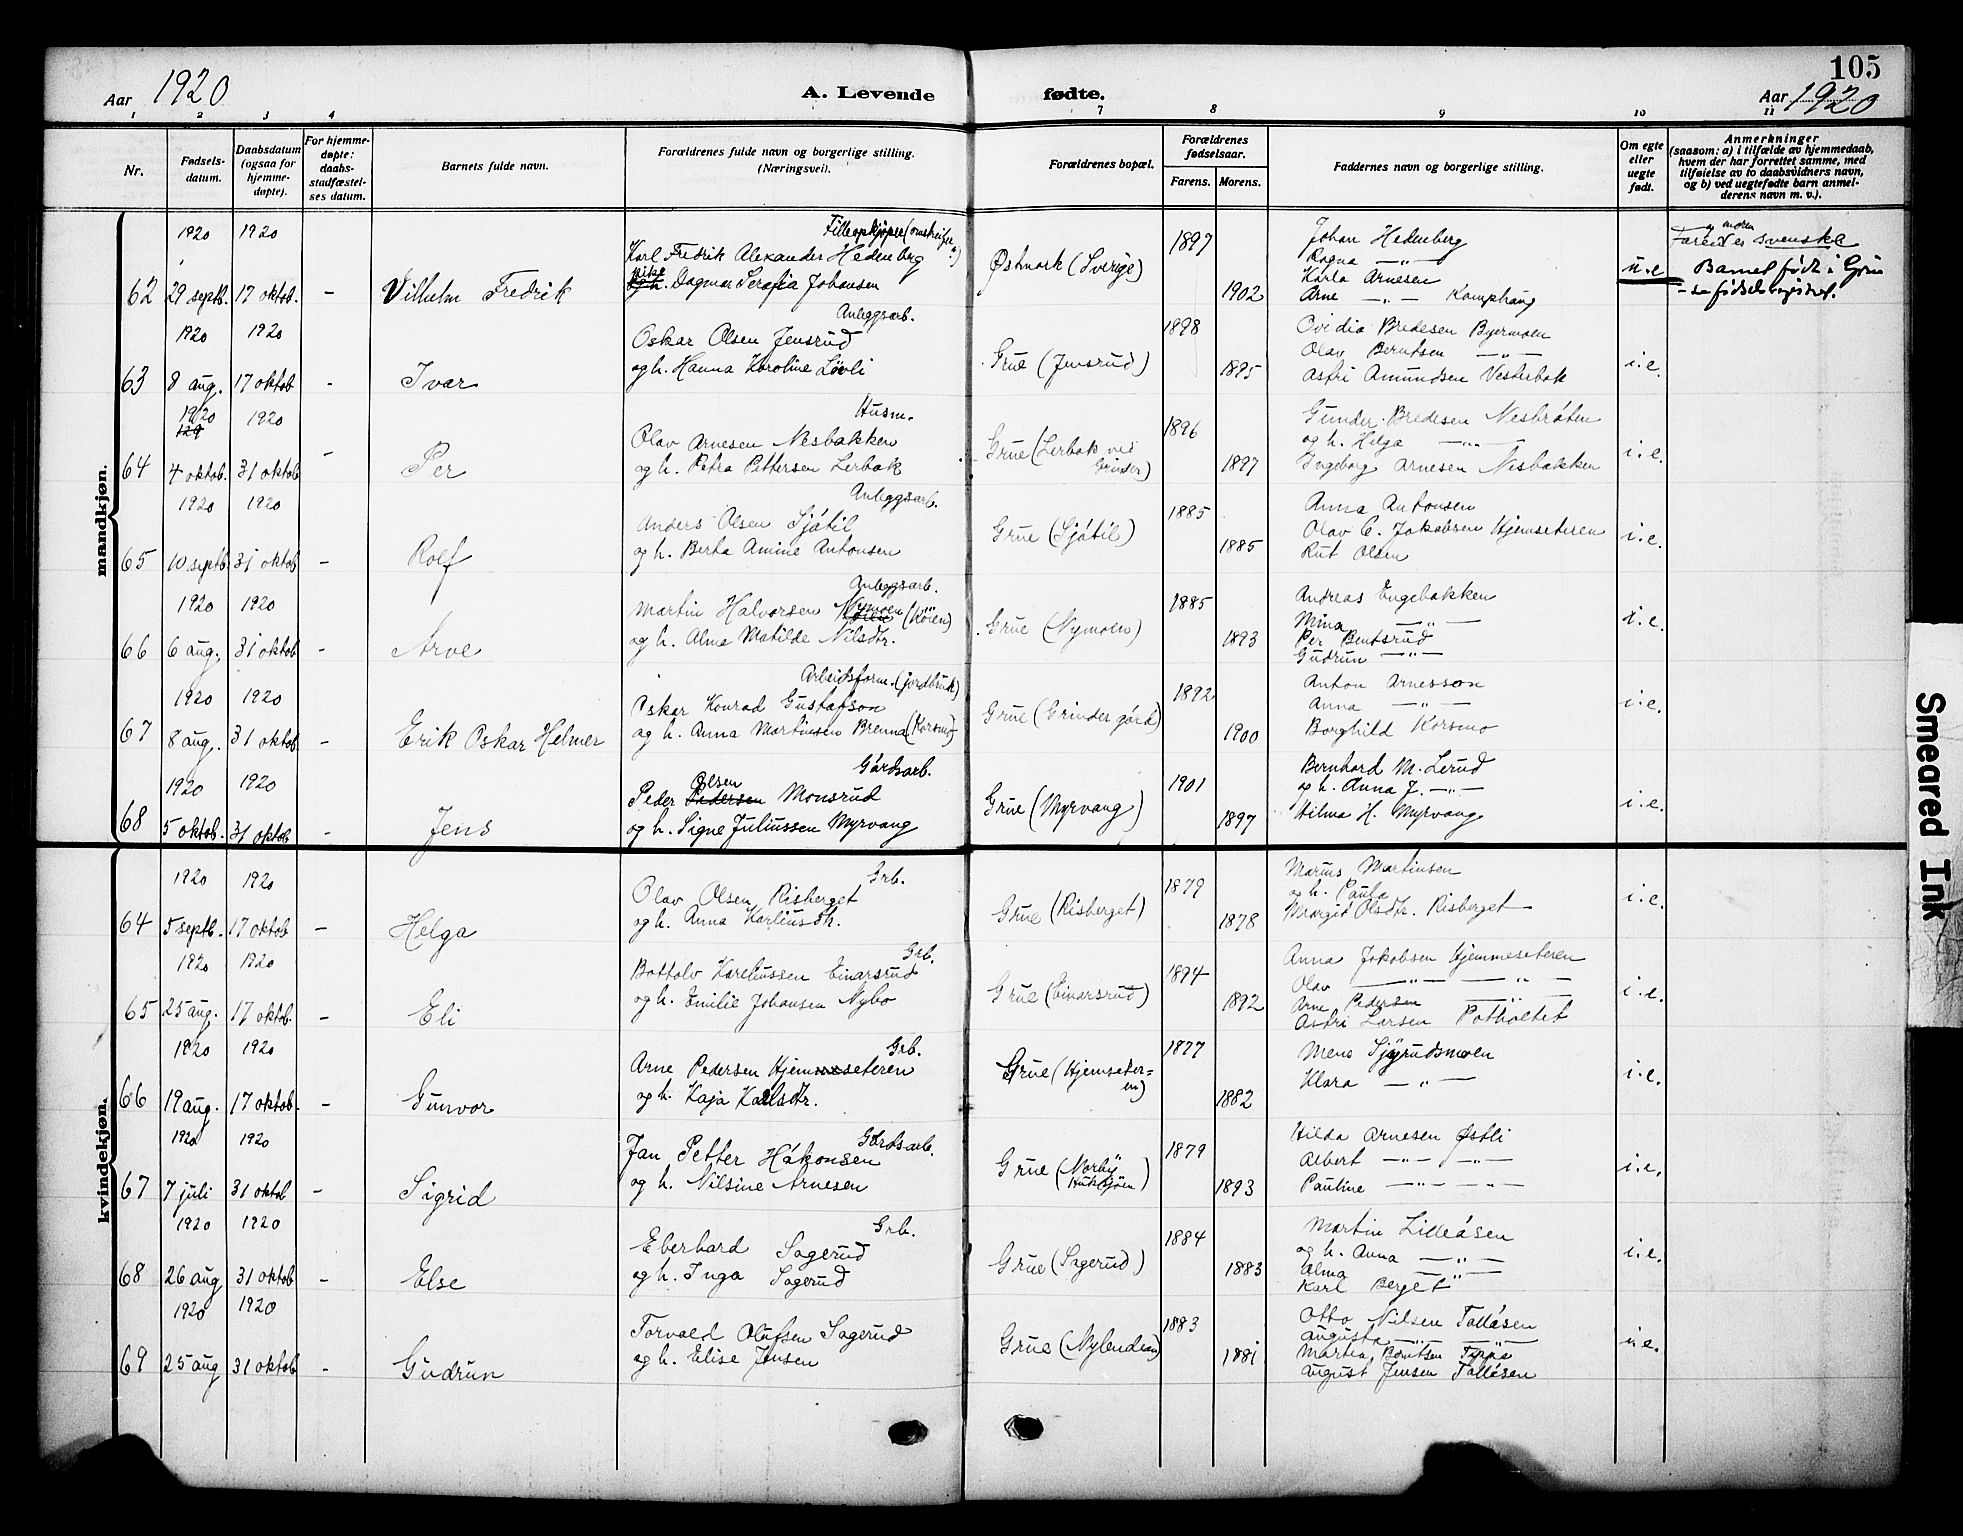 105
Aar 1920
A. Levende fødte.
Aar 1920
1 2 3 4 7 8 9 10 11
Nr.
Fødsels-
datum.
Daabsdatum
(ogsaa for
hjemme-
døpte).
For hjemme-
døpte:
daabs-
stadfæstel-
ses datum.
Barnets fulde navn.
Forældrenes fulde navn og borgerlige stilling.
(Næringsvei).
Forældrenes bopæl.
Forældrenes
fødselsaar.
Farens. Morens.
Faddernes navn og borgerlige stilling.
Om egte
eller
uegte
født.
Anmerkninger
(saasom: a) i tilfælde av hjemmedaab,
hvem der har forrettet samme, med
tilføielse av to daabsvidners navn,
og b) ved uegtefødte barn anmel-
derens navn m. v.).
mandkjøn.
62 1920 29 septb. 1920 17 oktob. - Vilhelm Fredrik
Filleopkjøper (omstreifer)
Karl Fredrik Alexander Hedenberg
pike Dagmar Serafia Johansen
Østmark (Sverige) 1897 1902
Johan Hedenberg
Ragna — " —
Karla Arnesen
Arne — " — Kamphaug
u.e.
og moren
svenske
Barnet født i Grue
63 1920 8 aug. 1920 17 oktob. - Ivar
Anleggsarb.
Oskar Olsen Jensrud
og h. Hanna Karoline Løvli
Grue (Jensrud) 1898 1895
Ovidia Bredesen Byermoen
Olav Berntsen — " —
Astri Amundsen Vesterbak
i.e.
64 1920 4 oktob. 1920 31 oktob. - Per
Husm.
Olav Arnesen Nesbakken
og h. Petra Pettersen Lerbak
Grue (Lerbak ved
Grinder) 1896 1897
Gunder Bredesen Nesbråten
og h. Helga — " —
Ingeborg Arnesen Nesbakken
i.e.
65 1920 10 septb. 1920 31 oktob. - Rolf
Anleggsarb.
Anders Olsen Sjåtil
og h. Berta Amine Antonsen
Grue (Sjåtil) 1885 1885
Anna Antonsen
Olav C. Jakobsen Hjemseteren
Rut Olsen
i.e.
66 1920 6 aug. 1920 31 oktob. - Arve
Anleggsarb.
Martin Halvorsen Nymoen (Köien)
og h. Alma Matilde Nilsdtr.
Grue (Nymoen) 1885 1893
Andreas Engebakken
Mina — " —
Per Bentsrud
Gudrun — " —
i.e.
67 1920 8 aug. 1920 31 oktob. - Erik Oskar Helmer
Arbeidsform. (jordbruk)
Oskar Konrad Gustafson
og h. Anna Martinsen Brenna (Korsmo)
Grue (Grinder gård) 1892 1900
Anton Arnesson
Anna — " —
Borghild Korsmo
i.e.
68 1920 5 oktob. 1920 31 oktob. - Jens
Gårdsarb.
Olsen
Peder Pedersen Monsrud
og h. Signe Juliussen Myrvang
Grue (Myrvang) 1901 1897
Bernhard M. Lerud
og h. Anna J. — " —
Hilma H. Myrvang
i.e.
kvindekjøn.
64 1920 5 septb. 1920 17 oktob - Helga
Grb.
Olav Olsen Risberget
og h. Anna Karliusdtr.
Grue (Risberget) 1879 1878
Marius Martinsen
og h. Paula
Margit Olsdtr. Risberget
i.e.
65 1920 25 aug. 1920 17 oktob. - Eli
Grb.
Bottolv Kareliussen Einarsrud
og h. Emilie Johansen Nybo
Grue (Einarsrud) 1894 1892
Anna Jakobsen Hjemmeseteren
Olav — " — — " —
Arne Pedersen — " —
Astri Larsen Potholtet
i.e.
66 1920 19 aug. 1920 17 oktob. - Gunvor
Grb.
Arne Pedersen Hjemmeseteren
og h. Kaja Karlsdtr.
Grue (Hjemseter=
en) 1877 1882
Mens Sjyrudsmoen
Klara — " —
i.e.
67 1920 7 juli 1920 31 oktob - Sigrid
Gårdsarb.
Jan Petter Håkonsen
og h. Nilsine Arnesen
Grue (Norby
Hukusjöen) 1879 1893
Hilda Arnesen Østli
Albert — " — — " —
Pauline — " — — " —
i.e.
68 1920 26 aug 1920 31 oktob - Else
Grb.
Eberhard Sagerud
og h. Inga Sagerud
Grue (Sagerud) 1884 1883
Martin Lilleåsen
og h. Anna — " —
Alma — " —
Karl Berget
i.e.
69 1920 25 aug 1920 31 oktob - Gudrun
Torvald Olufsen Sagerud
og h. Elise Jensen
Grue (Nylendan) 1883 1881
Otto Nilsen Tallåsen
Augusta — " — — " —
Martha Berntsen
August Jensen Tallåsen
i.e.
Smeared Ink